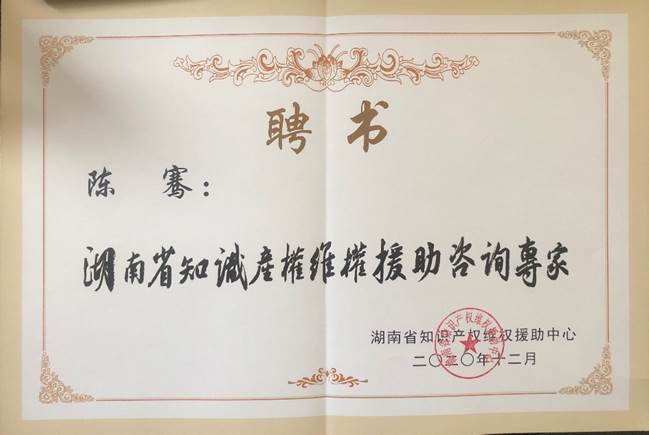 聘书
陈骞：
湖南省知識產權维權援助咨询專家
湖南省知识产权维权援助中心
二〇二〇年十二月